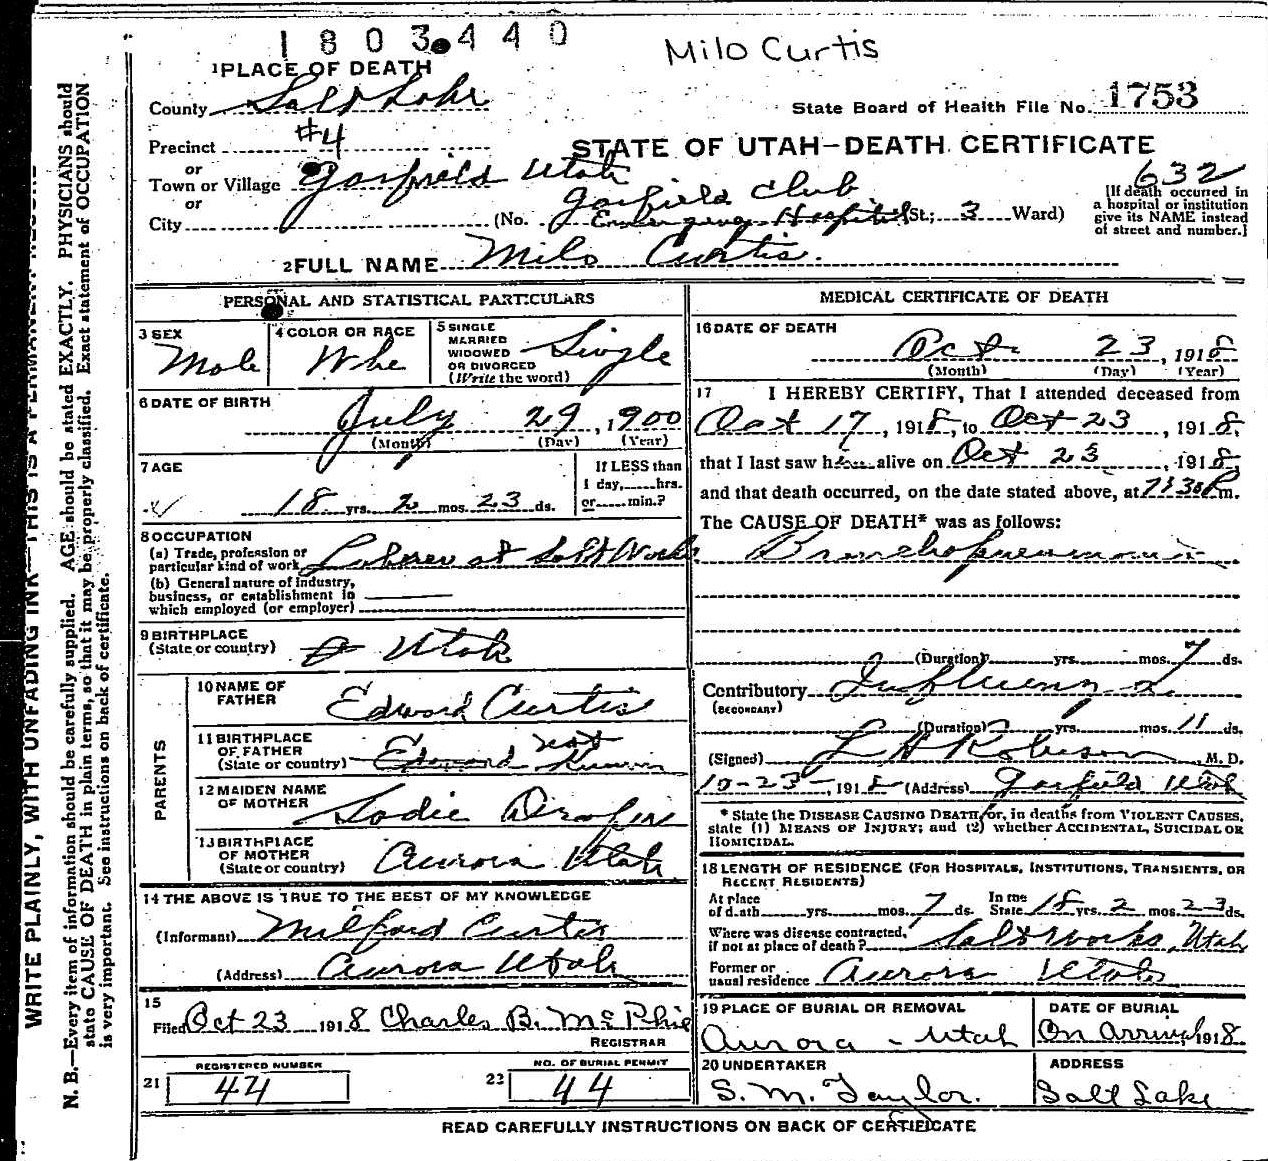 1803440
Milo Curtis
1 PLACE OF DEATH
County Salt Lake
State Board of Health File No. 1753
Precinct #4
STATE OF UTAH—DEATH CERTIFICATE
or
Town or Village Garfield Utah
632
or
Garfield Club
City (No. Emergency Hospital St.; 3 Ward)
[If death occurred in
a hospital or institution
give its NAME instead
of street and number.]
2 FULL NAME Milo Curtis.
PERSONAL AND STATISTICAL PARTICULARS
3 SEX
Male
4 COLOR OR RACE
Whe
5 SINGLE
MARRIED
WIDOWED
OR DIVORCED
(Write the word)
Single
6 DATE OF BIRTH
July 29, 1900
(Month) (Day) (Year)
7 AGE
18 yrs. 2 mos. 23 ds.
If LESS than
1 day, hrs.
or min.?
8 OCCUPATION
(a) Trade, profession or
particular kind of work Laborer at Salt Works
(b) General nature of industry,
business, or establishment in
which employed (or employer)
9 BIRTHPLACE
(State or country) Utah
PARENTS
10 NAME OF
FATHER Edward Curtis
11 BIRTHPLACE
OF FATHER
(State or country) Edward not Known
12 MAIDEN NAME
OF MOTHER Sadie
13 BIRTHPLACE
OF MOTHER
(State or country) Aurora Utah
14 THE ABOVE IS TRUE TO THE BEST OF MY KNOWLEDGE
(Informant) Milford Curtis
(Address) Aurora Utah
15
Filed Oct 23 1918 Charles B. McPhie
REGISTRAR
21 REGISTERED NUMBER
44
22 NO. OF BURIAL PERMIT
44
MEDICAL CERTIFICATE OF DEATH
16 DATE OF DEATH
Oct 23, 1918
(Month) (Day) (Year)
17 I HEREBY CERTIFY, That I attended deceased from
Oct 17, 1918, to Oct 23, 1918,
that I last saw him alive on Oct 23, 1918,
and that death occurred, on the date stated above, at 7:30 P.m.
The CAUSE OF DEATH* was as follows:
Bronchopneumonia
(Duration) yrs. mos. 7 ds.
Contributory Influenza.
(SECONDARY)
(Duration) yrs. mos. 11 ds.
(Signed) L H Robison, M. D.
10-23-, 1918 (Address) Garfield Utah
* State the DISEASE CAUSING DEATH, or, in deaths from VIOLENT CAUSES,
state (1) MEANS OF INJURY; and (2) whether ACCIDENTAL, SUICIDAL OR
HOMICIDAL.
18 LENGTH OF RESIDENCE (FOR HOSPITALS, INSTITUTIONS, TRANSIENTS, OR
RECENT RESIDENTS)
At place
of death yrs. mos. 7 ds.
In the
State 18 yrs. 2 mos. 23 ds.
Where was disease contracted,
if not at place of death? Saltworks, Utah
Former or
usual residence Aurora Utah
19 PLACE OF BURIAL OR REMOVAL
Aurora - Utah
DATE OF BURIAL
On Arrival, 1918
20 UNDERTAKER
S. M. Taylor.
ADDRESS
Salt Lake
READ CAREFULLY INSTRUCTIONS ON BACK OF CERTIFICATE
WRITE PLAINLY, WITH UNFADING INK—THIS IS A PERMANENT RECORD
N. B.—Every item of information should be carefully supplied. AGE should be stated EXACTLY. PHYSICIANS should
state CAUSE OF DEATH in plain terms, so that it may be properly classified. Exact statement of OCCUPATION
is very important. See instructions on back of certificate.